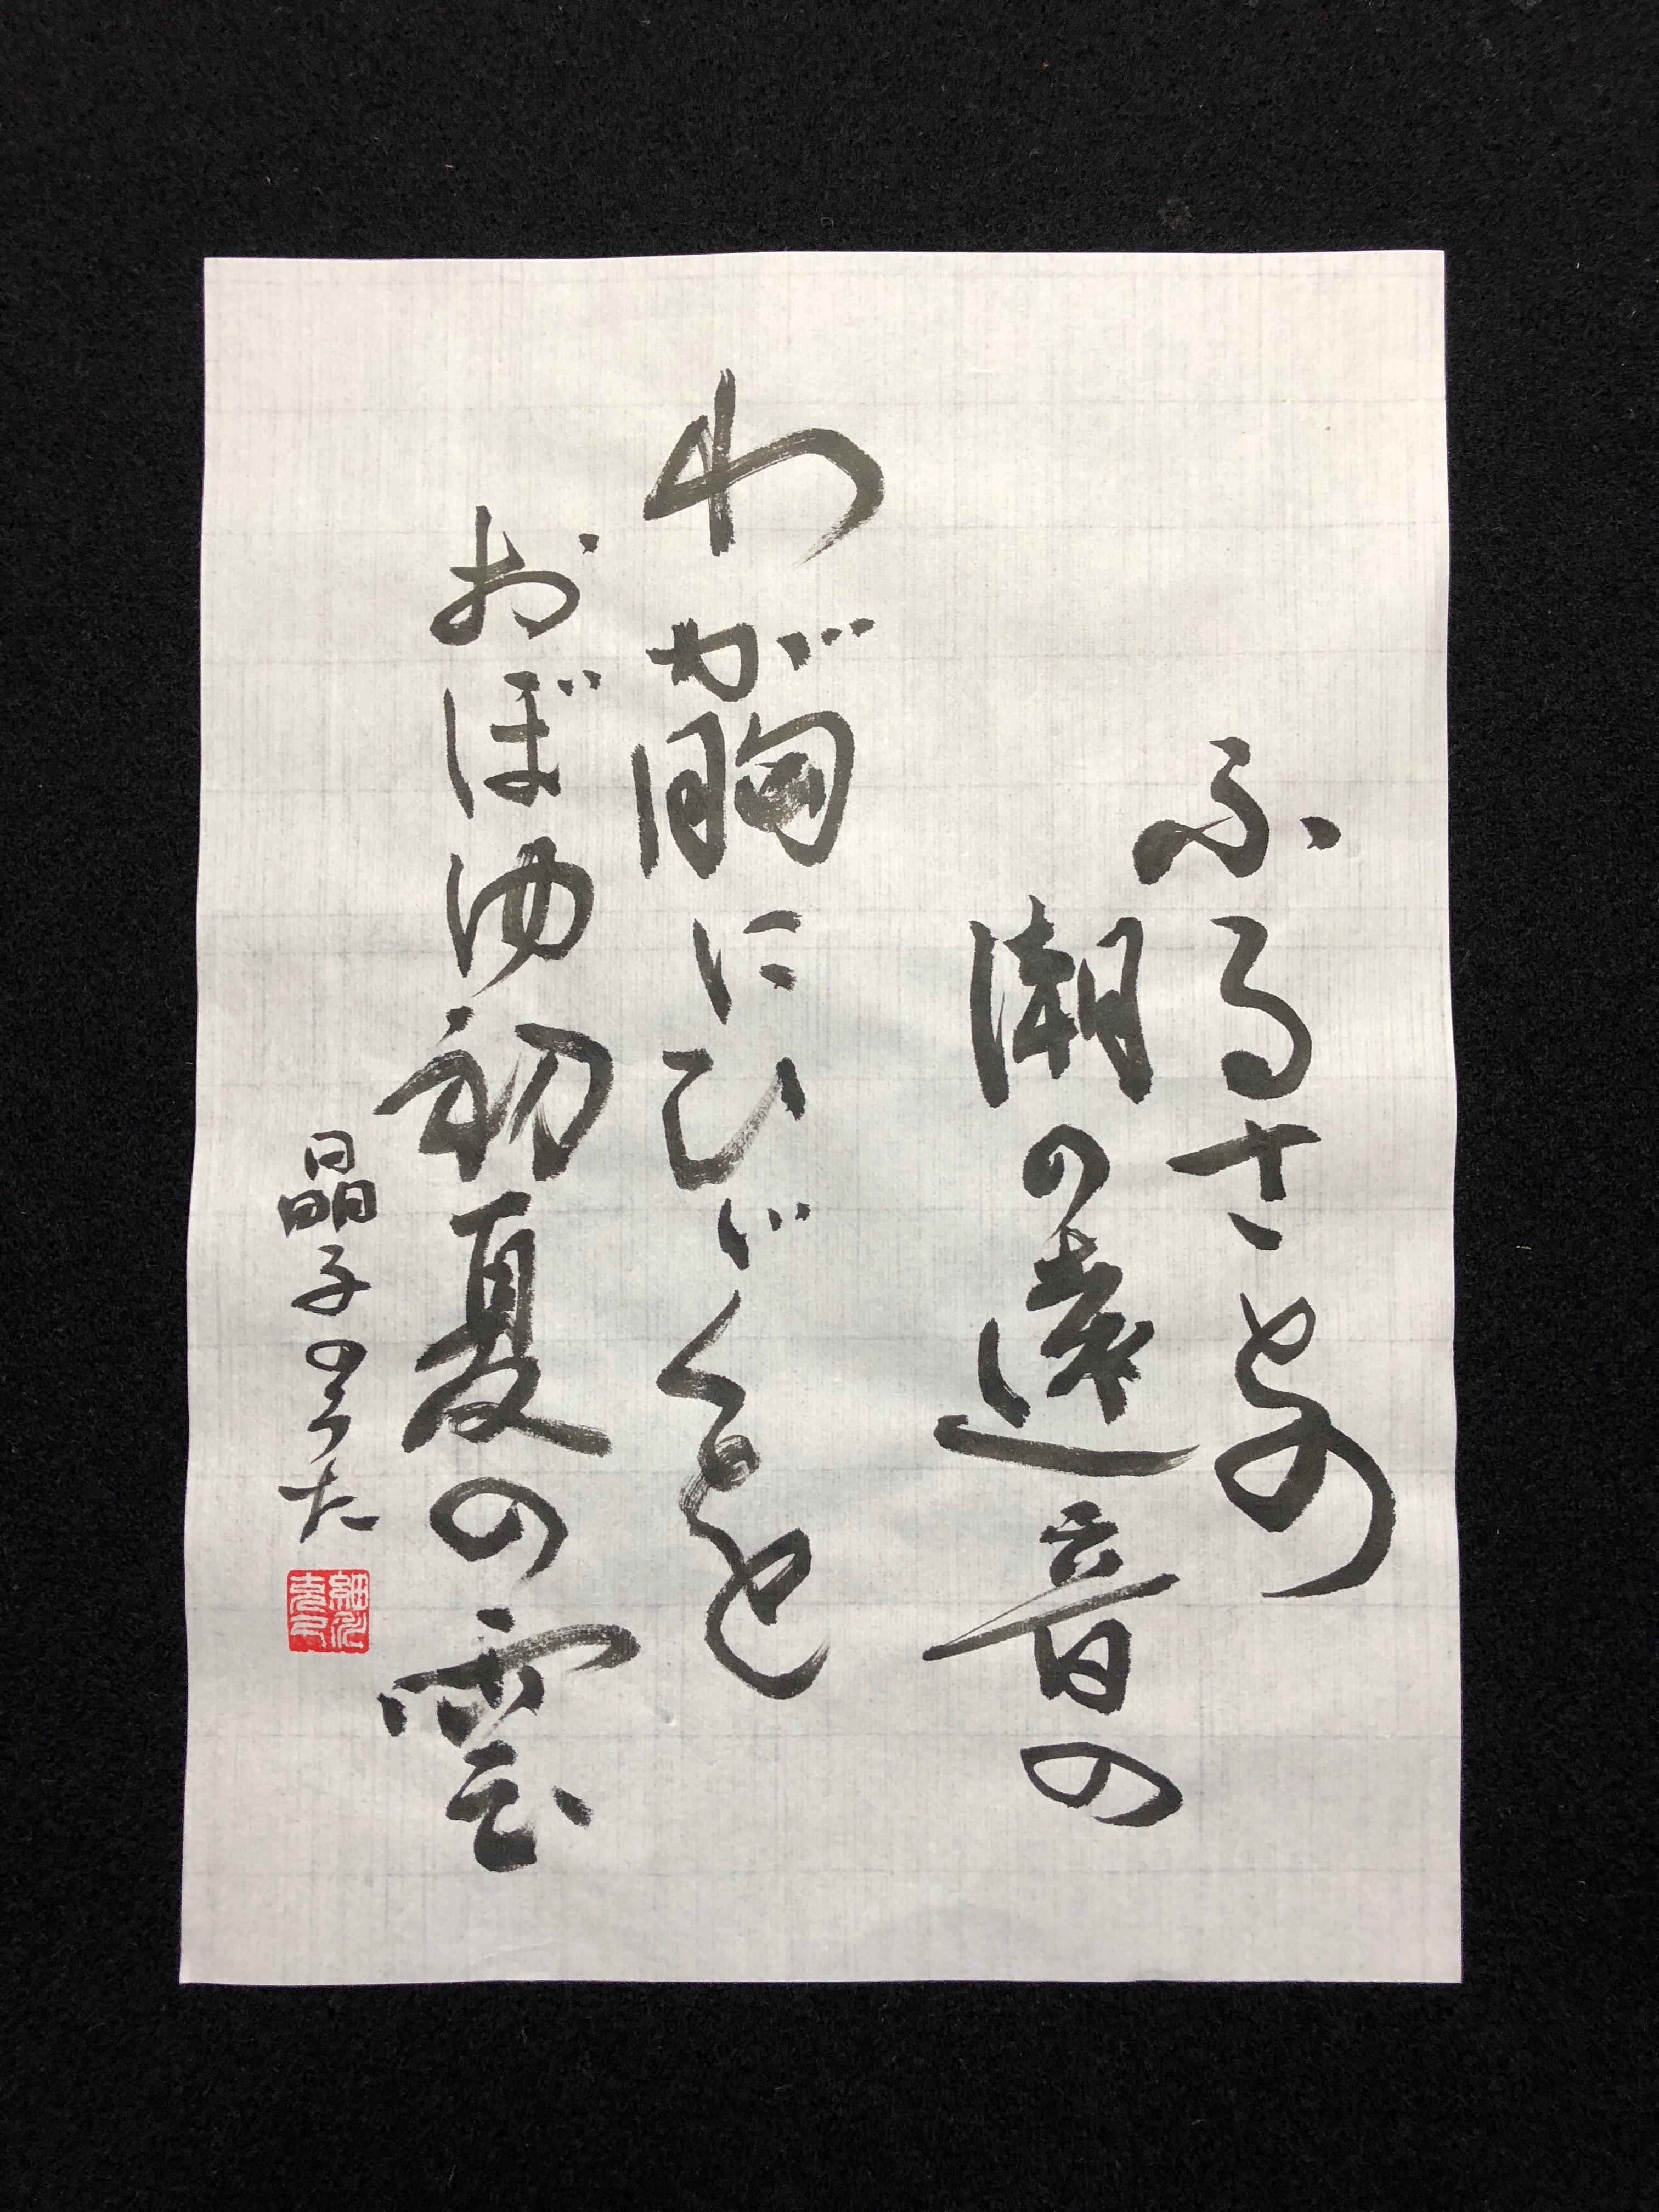 ふるさとの
潮の遠音の
わが胸にひびくをば
おぼゆ初夏の雲
晶子のうた